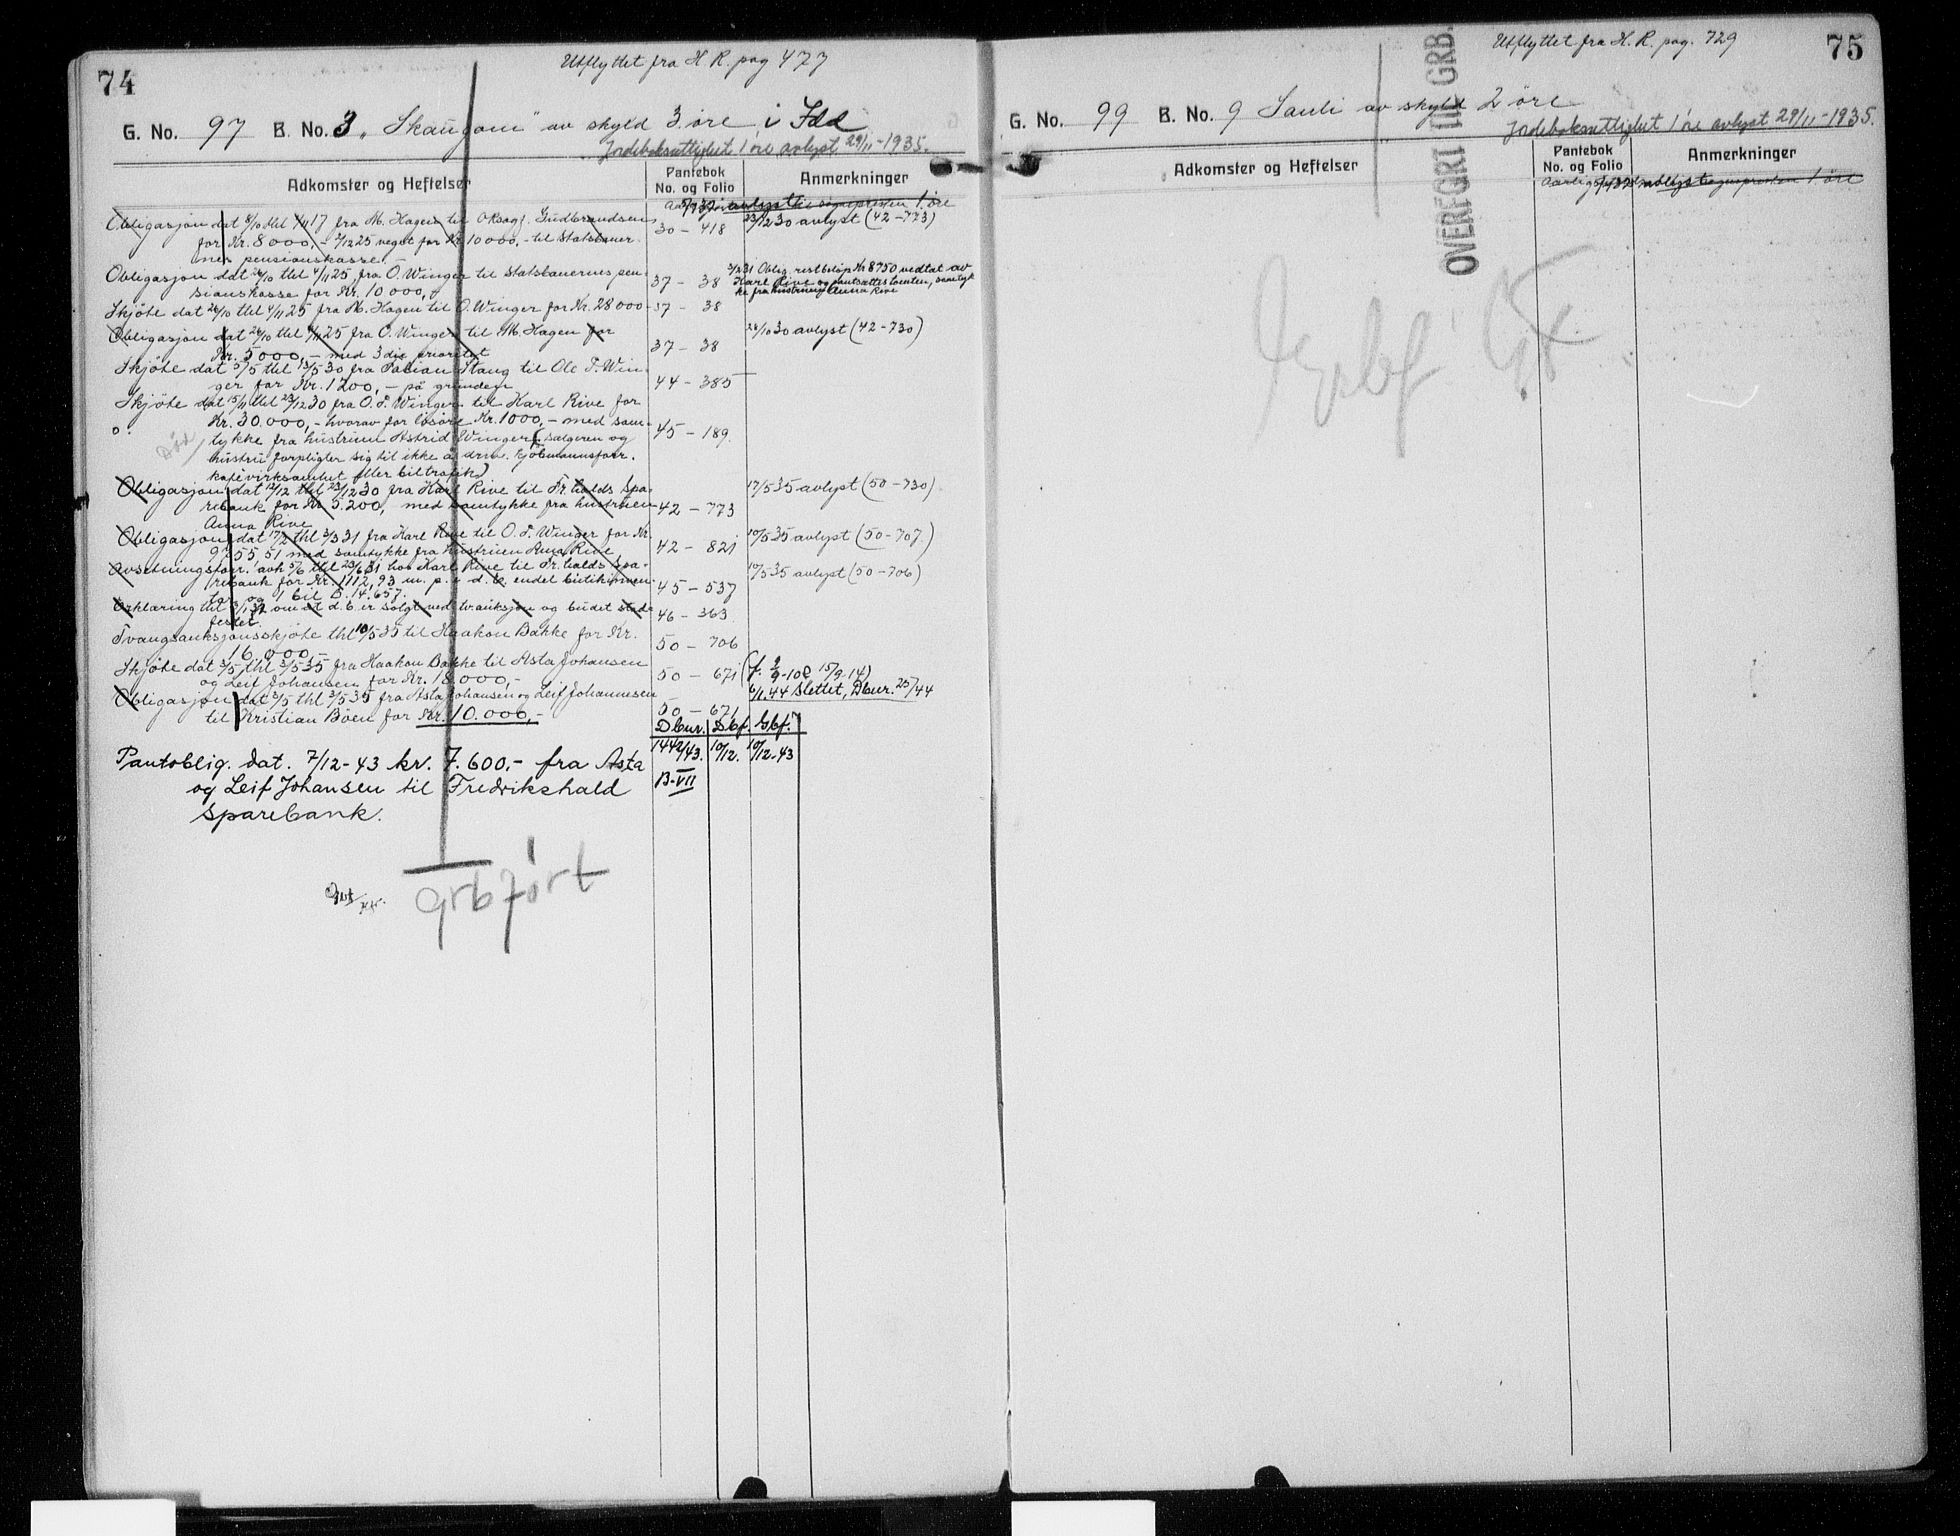 74
Utflyttet fra H R. pag 477
G. No. 97 B. No. 3 „Skaugom" av skyld 3 öre i Idd
Jordeboksrettighet 1 öre avlyst 29/11-1935.
Adkomster og Heftelser
Pantebok
No. og Folio
Anmerkninger
Obligasjon dat 8/10 thl 4/11 17 fra M. Hagen til O Ksogf. Gudbrandsen 30 - 418 23/12 30 avlyst (42-773)
for Kr. 8000,- 25 veget for Kr. 10000,- til Statsbaner-
nes pensionskasse.
Obligasjon dat 26/10 thl 4/11 25 fra O. Winger til Statsbanernes pen- 37 - 38 3/2 31 Oblig. restbeløp Kr 8950 vedtat av
sionskasse for Kr. 10 000,- Karl Rive og pantsættes tomten, samtyk
ke fra hustruen Anna Rive
Skjöte dat 26/10 thl 4/11 25 fra M. Hagen til O. Winger for Kr. 28 000 37 - 38
Obligasjon dat 26/10 thl 4/11 25 fra O. Winger til M. Hagen for 28/10 30 avlyst (42-730)
Kr. 5000,- med 3die prioritet 37 - 38
Skjöte dat 5/5 thl 13/5 30 fra Fabian Stang til Ole T. Win-
ger for Kr. 1200,- på grunden 44 - 385
Skjöte dat 15/11 thl 23/12 30 fra O. T. Winger til Karl Rive for
Kr. 30.000,- hvorav for lösöre Kr. 1000,- med sam-
tykke fra hustruen Astrid Winger (sælgeren og 45 - 189.
hustru forpligter sig til ikke å drive kjöbmannsforr.
kafévirksomhet eller biltrafik)
Obligasjon dat 12/12 thl 23/12 30 fra Karl Rive til Fr.halds Spa- 17/5 35 avlyst (50-730)
rebank for Kr 5.200, med samtykke fra hustruen 42 - 773
Anna Rive
Obligasjon dat 17/2 thl 3/3 31 fra Karl Rive til O. T. Winger for Kr. 42 - 821 10/5 35 avlyst (50-707.)
9 55,51 med samtykke fra hustruen Anna Rive
Avsetningsforr. avh 5/6 thl 23/6 31 hos Karl Rive til Fr.halds Spa- 10/5 35 avlyst (50-706)
rebank for Kr. 1112,93 m. p. i d. b. endel butikinven- 45 - 537
tar og 1 bil B. 14.657.
Erklæring thl 3/1 32 om at d. b. er solgt ved tv.auksjon og budet stad- 46 - 363
festet.
Tvangsauksjonsskjöte thl 10/5 35 til Haakon Bakke for Kr. 50 - 706
16.000,-
Skjöte dat 3/5 thl 3/5 35 fra Haakon Bakke til Asta Johansen 50 - 671
og Leif Johansen for Kr. 18.000,-
Obligasjon dat 3/5 thl 3/5 35 fra Asta Johansen og Leif Johannesen 6/1.44 Slettet, Dbnr. 25/44
til Kristian Böen for Kr. 10.000,- 50 - 671
Dbnr. Dbf. Gbf.
Pantoblig. dat. 7/12-43 kr. 7.600,- fra Asta 1442/43. 10/12. 10/12-43
og Leif Johansen til Fredrikshald B-VII
Sparebank.
grbført
75
Utflyttet fra H. R. pag. 729
G. No. 99 B. No. 9 Sauli av skyld 2 öre
Jordeboksrettighet 1 öre avlyst 29/11-1935.
Adkomster og Heftelser
Pantebok
No. og Folio
Anmerkninger
OVERFØRT TIL GRB.